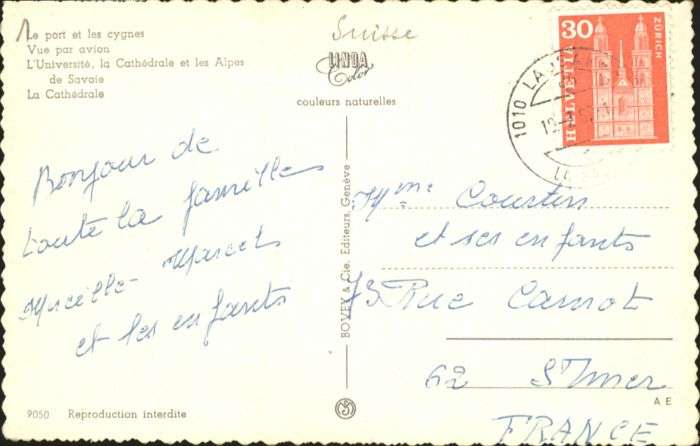 Le port et les cygnes
Vue par avion
L'Université, la Cathédrale et les Alpes
de Savoie
La Cathédrale
Suisse
LINDA
Color
couleurs naturelles
30
HELVETIA
ZÜRICH
1010 LA
Bonjour de
toute la famille
Mireille Marcel
et les enfants
BOVEY & Cie, Editeurs, Genève
Mme Courtin
et ses enfants
73 Rue Carnot
62 St Imer
FRANCE
A E
9050 Reproduction interdite